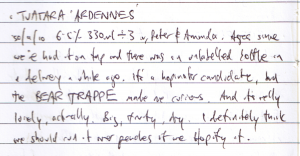 · TUATARA 'ARDENNES'
30/1/10 6.5% 330ml ÷ 3 w, Peter & Amanda. Ages since
we'd had it on tap and there was an unlabelled bottle in
a delivery a while ago. It's a hopinator candidate, but
the BEAR TRAPPE made me curious. And it's really
lovely, actually. Big, fruity, dry. I definitely think
we should run it over peaches if we hopify it.